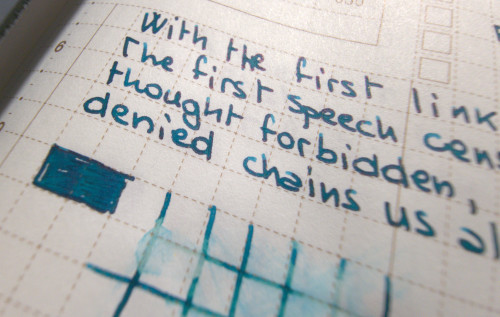 6
With the first link
The first speech cens
thought forbidden,
denied chains us al